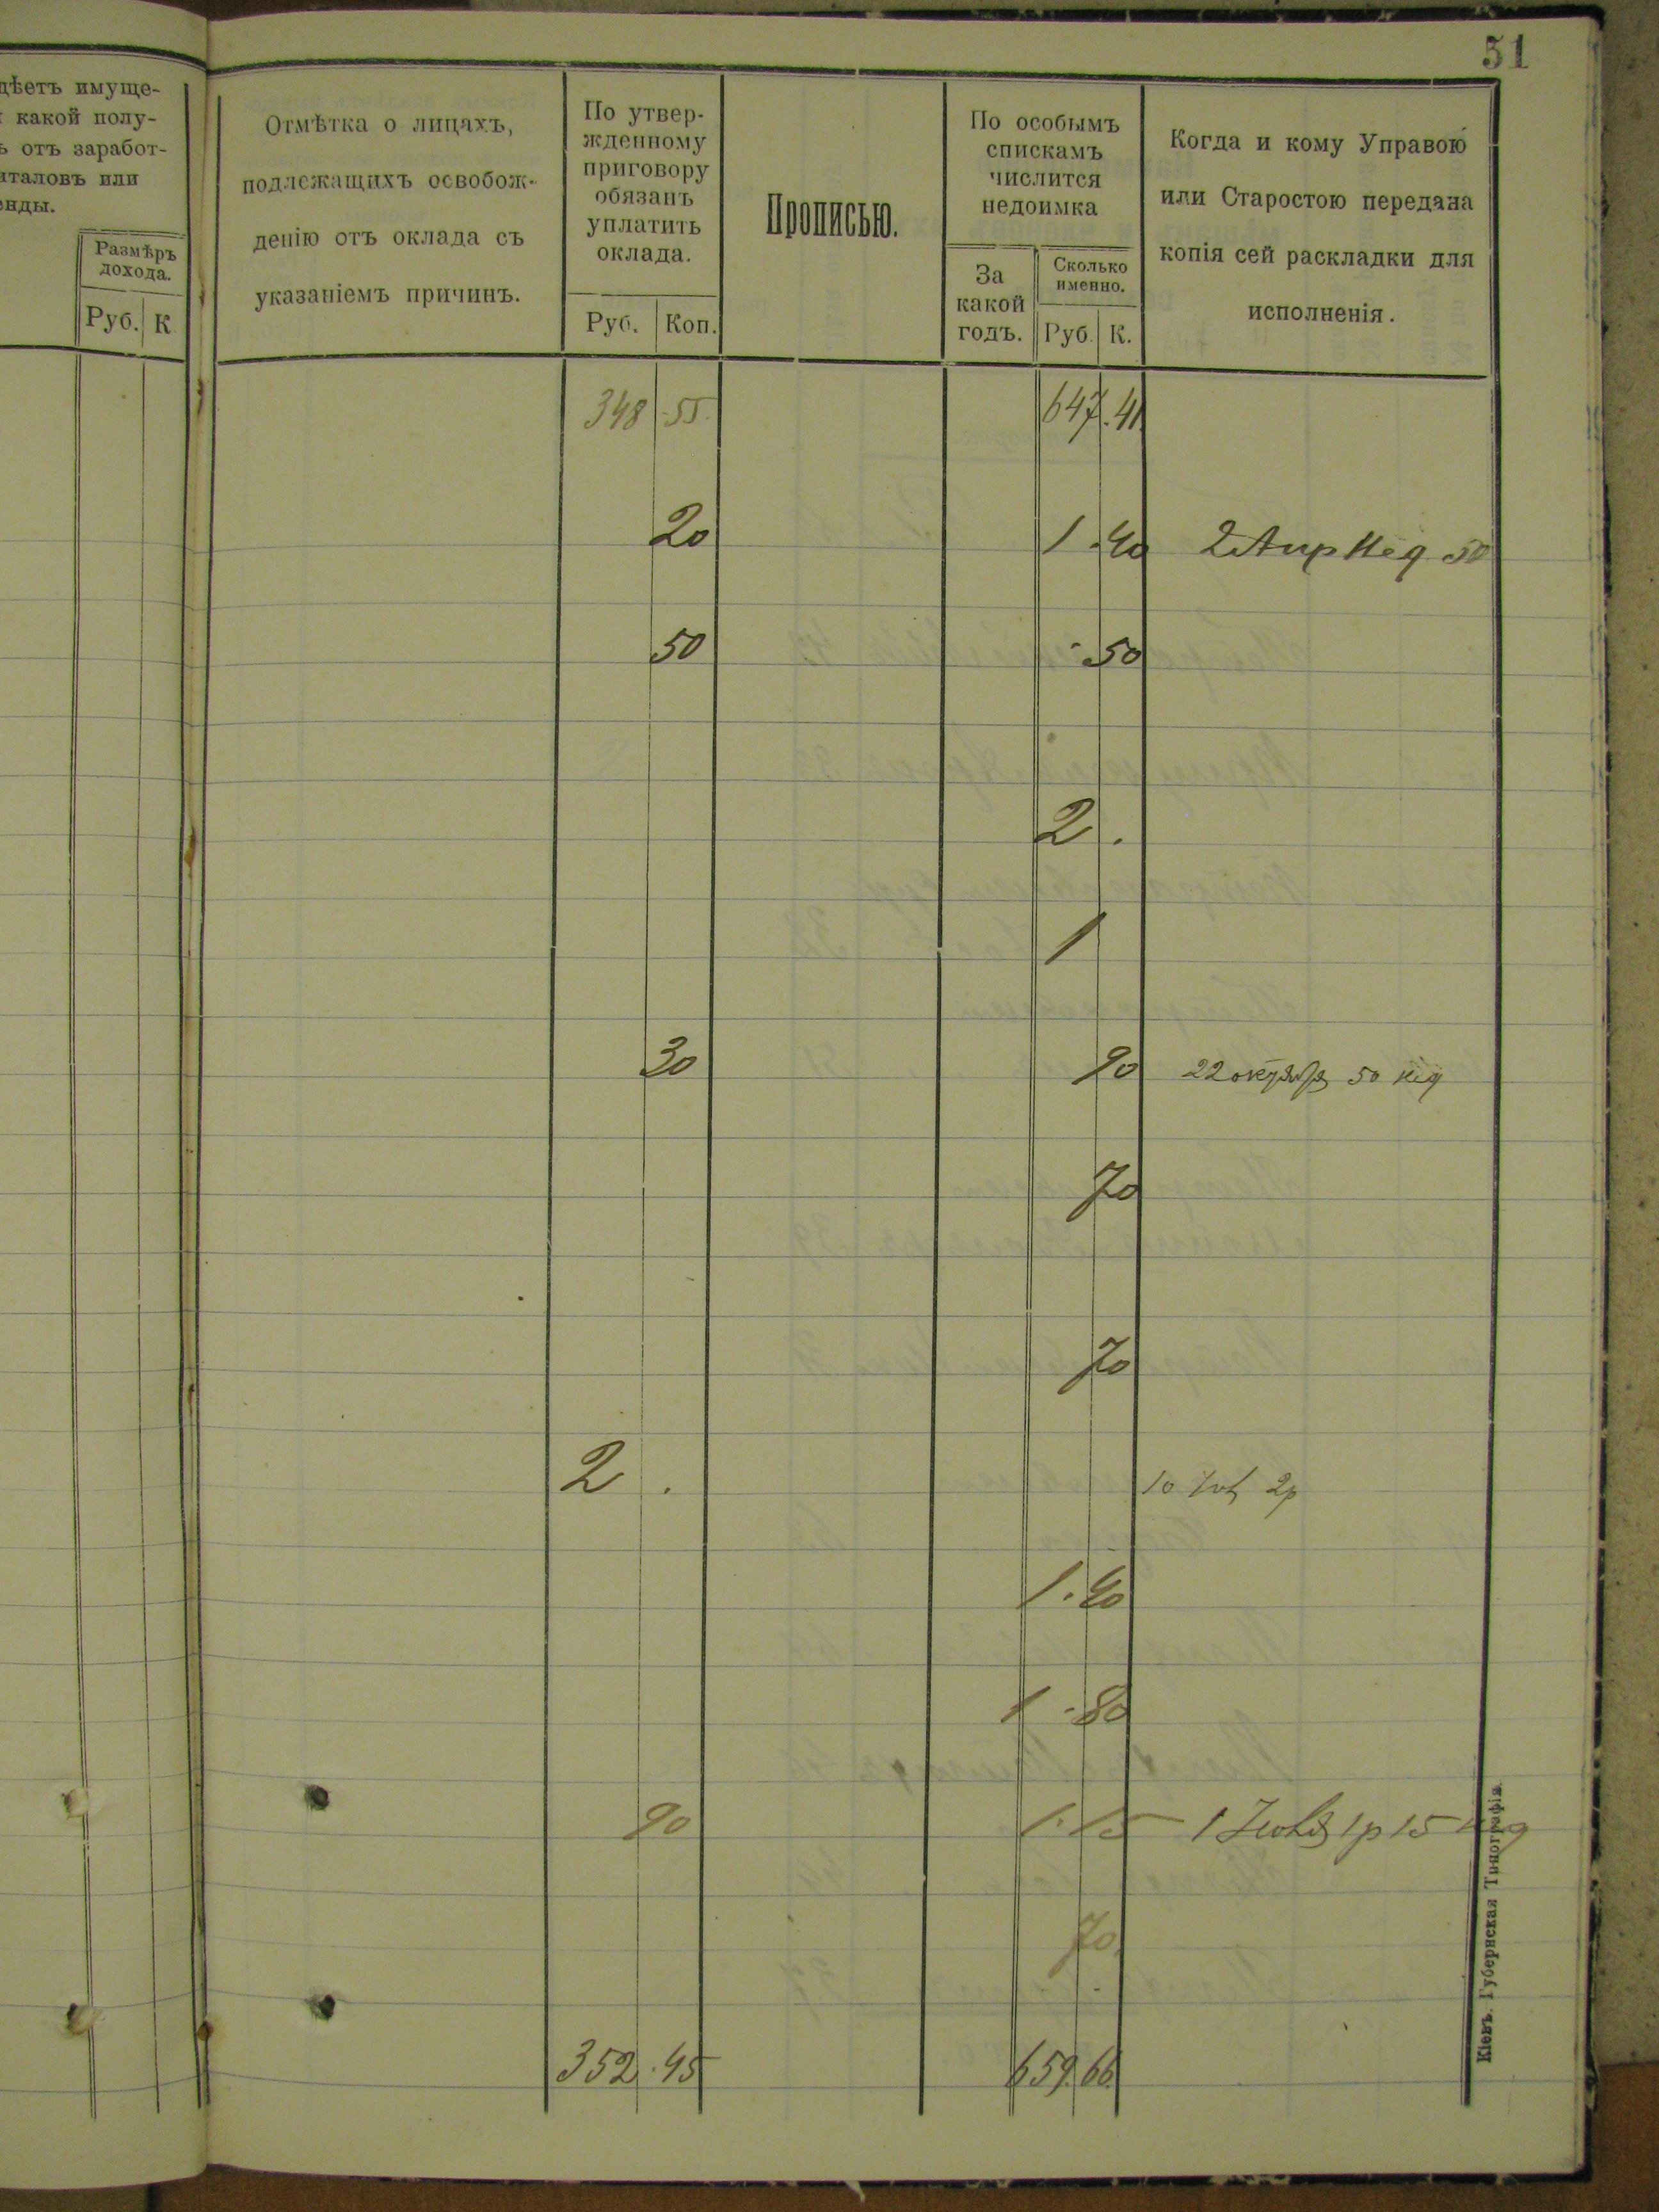 51
дѣетъ имуще-
какой полу-
ъ отъ заработ-
италовъ или
енды.
Размѣръ
дохода.
Руб. К
Отмѣтка о лицахъ,
подлежащихъ освобож-
денію отъ оклада съ
указаніемъ причинъ.
По утвер-
жденному
приговору
обязанъ
уплатить
оклада.
Руб. Коп.
Прописью.
По особымъ
спискамъ
числится
недоимка
За
какой
годъ.
Сколько
именно.
Руб. К.
Когда и кому Управою
или Старостою передана
копія сей раскладки для
исполненія.
348 55. 647.41.
20 1.40 2 Апр 50
50 - 50
2 .
1
30 90 22 октября 50 кіи
70
70
2 . 10 2р
1.40
1-80
90 1.15 1 1р 15
70.
352.45 659.66.
Кіевъ. Губернская Типографія.